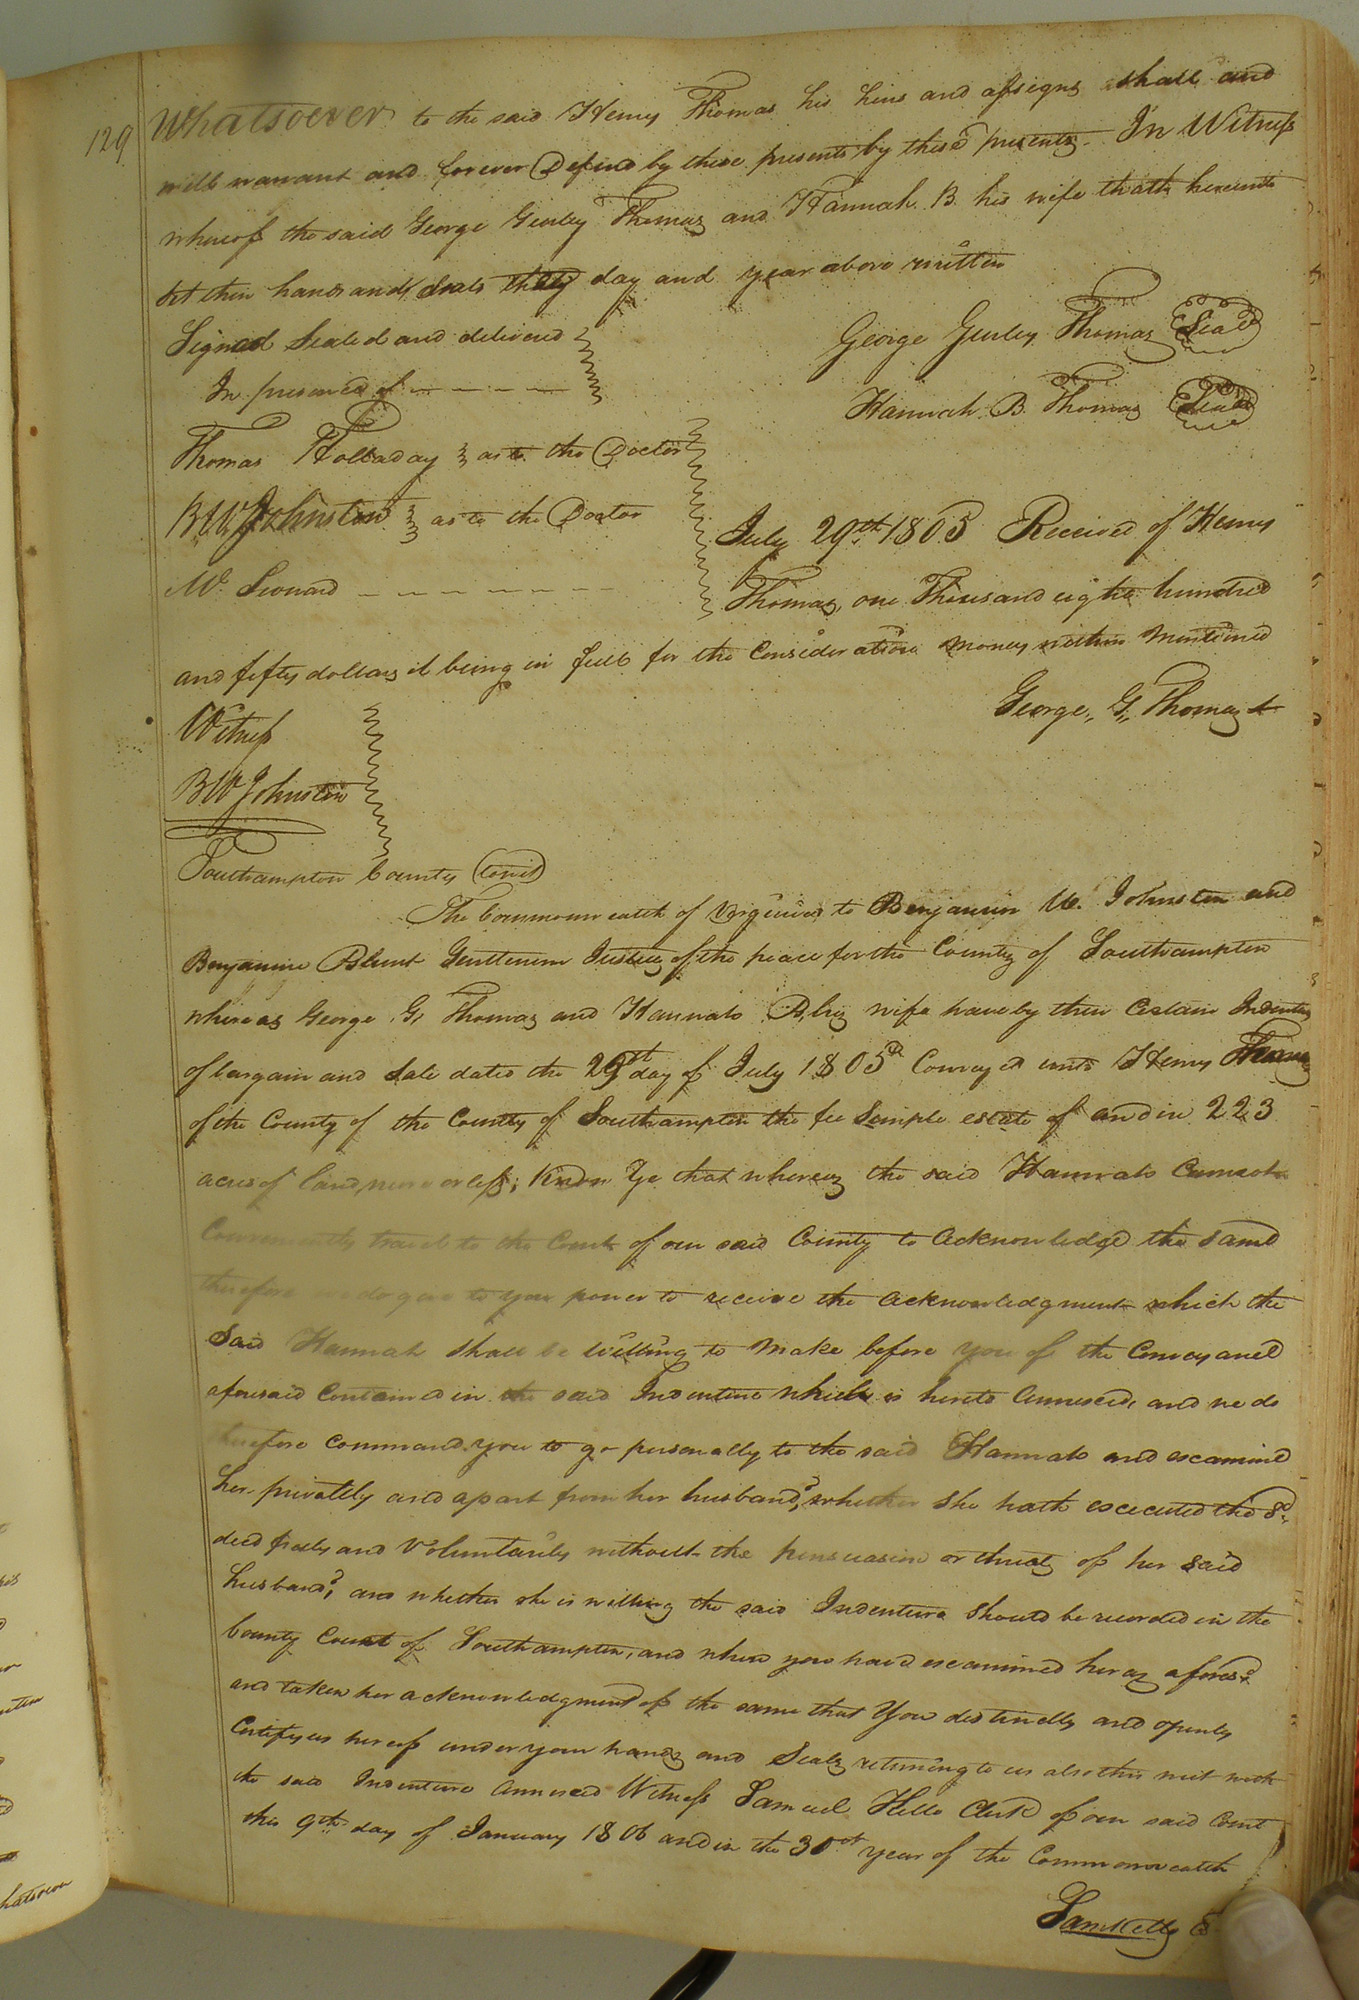 129
Whatsoever to the said Henry Thomas his heirs and assigns shall and
will warrant and forever Defend by these presents by these presents. In Witness
whereof the said George Gurley Thomas and Hannah B. his wife hath hereunto
set their hands and Seals the day and year above written
Signed Sealed and delivered
In presence of
George Gurley Thomas Seal
Hannah B. Thomas Seal
Thomas Holladay as to the Doctor
BW Johnston as to the Doctor
W. Leonard
July 29th 1805 Received of Henry
Thomas one Thousand eight hundred
and fifty dollars it being in full for the Consideration money within Mentioned
George, G, Thomas
Witness
BW Johnston
Southampton County towit
The Commonwealth of Virginia to Benjamin W. Johnston and
Benjamin Blunt Gentlemen Justices of the peace for the County of Southampton
whereas George G, Thomas and Hannah B, his wife have by their Certain Indenture
of bargain and Sale dated the 29th day of July 1805 Conveyed unto Henry Thomas
of the County of the County of Southampton the fee Simple estate of and in 223
acres of land more or less; Know Ye that whereas the said Hannah Cannot
Conveniently travel to the Court of our said County to Acknowledge the same
therefore we do give to you power to receive the Acknowledgment which the
Said Hannah shall be willing to make before you of the Conveyance
aforesaid Contained in the said Indenture which is hereto Annexed, and we do
therefore command you to go personally to the said Hannah and examine
her privately and apart from her husband, whether She hath executed the Sd.
deed freely and Voluntarily without the persuasion or threats of her said
husband, and whether she is willing the said Indenture Should be recorded in the
County Court of Southampton, and when you have examined her as aforesd.
and taken her acknowledgment of the same that You distinctly and openly
Certify us hereof under your hands and Seals returning to us also this writ with
the said Indenture Annexed Witness Samuel Kello Clerk of our said Court
this 9th day of January 1806 and in the 30th year of the Commonwealth
Sam Kello
hatsoever